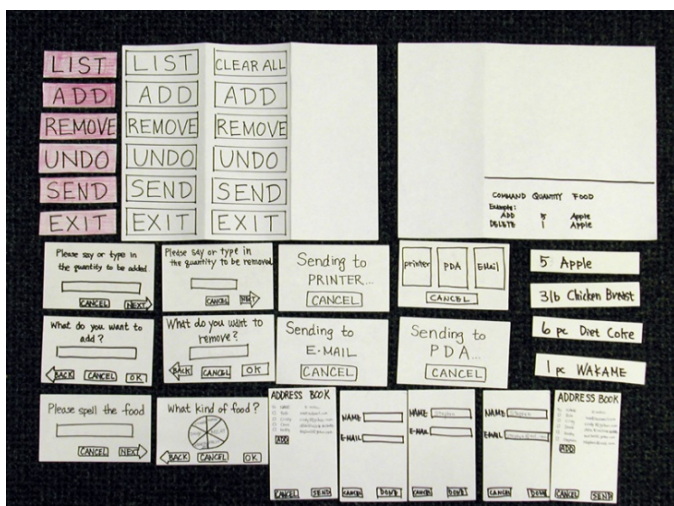 LIST
ADD
REMOVE
UNDO
SEND
EXIT
LIST
ADD
REMOVE
UNDO
SEND
EXIT
CLEAR ALL
ADD
REMOVE
UNDO
SEND
EXIT
COMMAND QUANTITY FOOD
Example:
ADD 5 Apple
DELETE 1 Apple
Please say or type in
the quantity to be added
CANCEL NEXT
Please say or type in
the quantity to be removed
CANCEL NEXT
Sending to
PRINTER...
CANCEL
printer PDA EMail
CANCEL
5 Apple
3lb Chicken Breast
6 pc Diet Coke
1 pc WAKAME
What do you want to
add?
BACK CANCEL OK
What do you want to
remove?
BACK CANCEL OK
Sending to
E-MAIL
CANCEL
Sending to
PDA...
CANCEL
Please spell the food
CANCEL NEXT
What kind of food?
BACK CANCEL OK
ADDRESS BOOK
ADD
CANCEL SEND
NAME
E-MAIL
CANCEL DONE
NAME
E-MAIL
CANCEL DONE
NAME
E-MAIL
CANCEL DONE
ADDRESS BOOK
ADD
CANCEL SEND